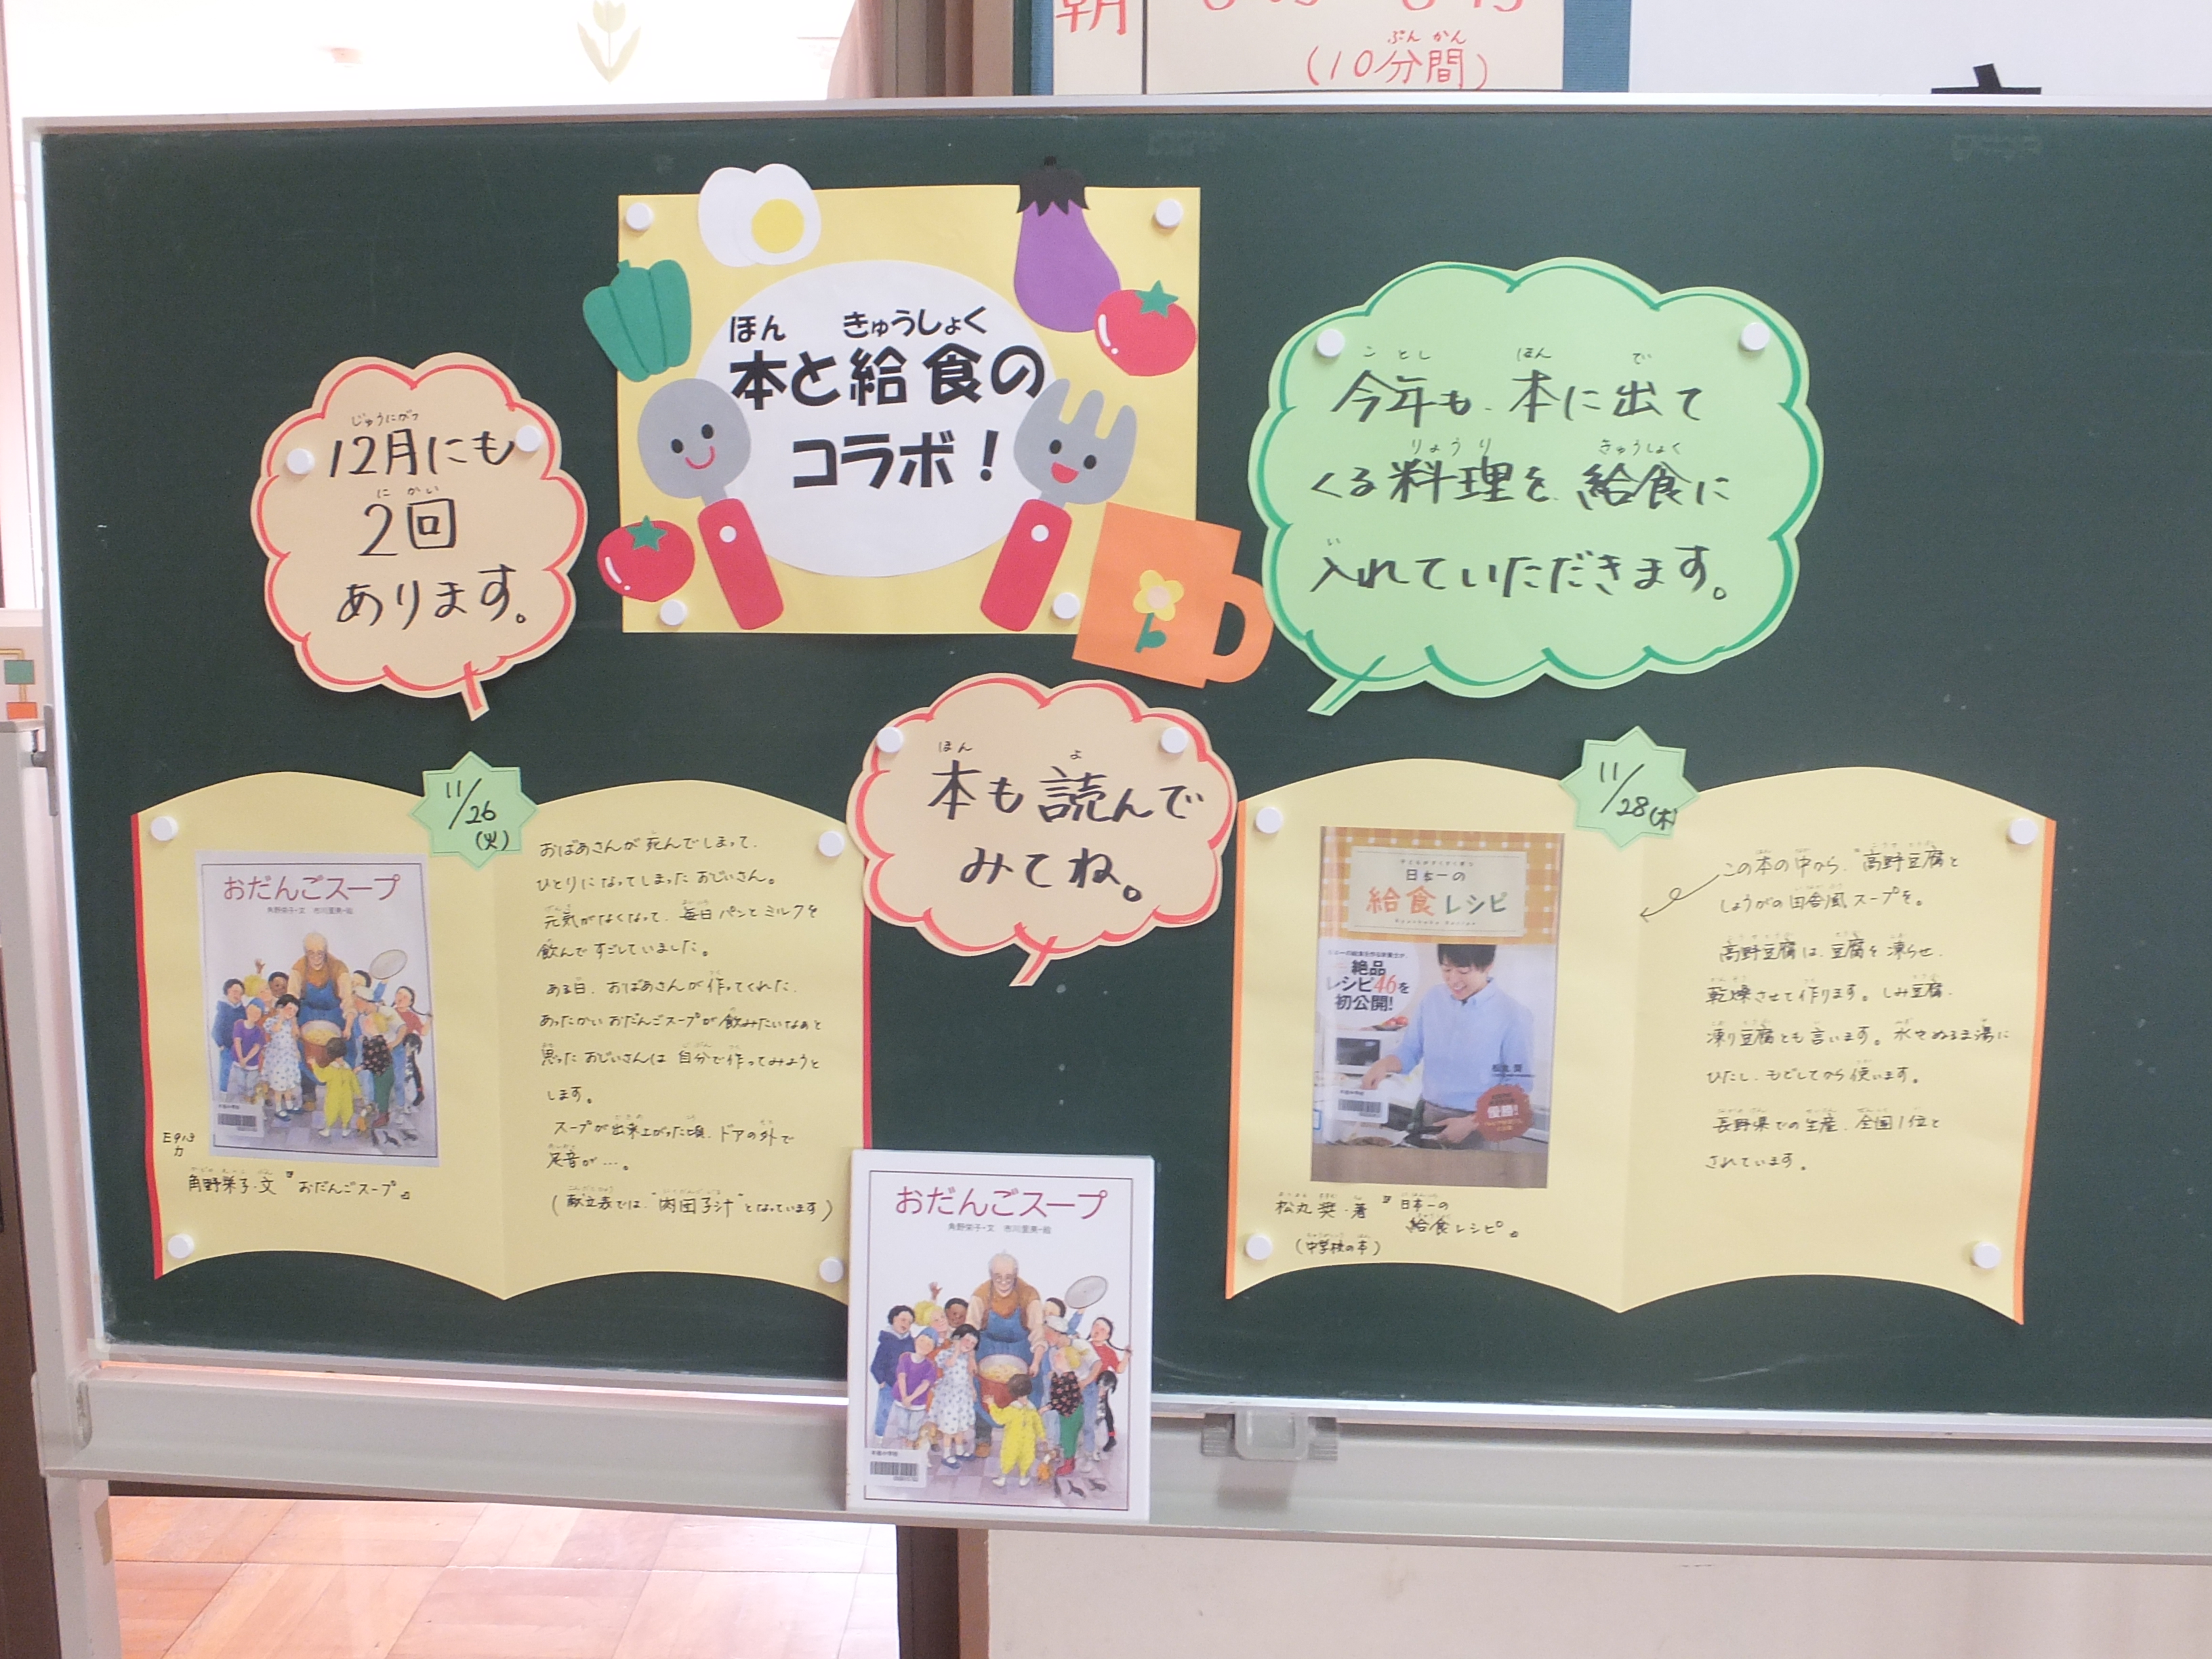 朝
ぷん かん
(10分間)
ほん きゅうしょく
本と給食の
コラボ!
じゅうにがつ
12月にも
に かい
2回
あります。
ことし ほん で
今年も、本に出て
りょうり きゅうしょく
くる料理を、給食に
い
入れていただきます。
ほん よ
本も読んで
みてね。
11/26
(火)
おだんごスープ
角野栄子・文 市川里美・絵
E913
カ
角野栄子・文『おだんごスープ』
おばあさんが死んでしまって、
ひとりになってしまったおじいさん。
元気がなくなって、毎日パンとミルクを
飲んですごしていました。
ある日、おばあさんが作ってくれた、
あったかいおだんごスープが飲みたいなあと
思ったおじいさんは自分で作ってみようと
します。
スープが出来上がった頃、ドアの外で
足音が…。
(献立表では、"肉団子汁"となっています)
おだんごスープ
角野栄子・文 市川里美・絵
11/28(木)
日本一の
給食レシピ
絶品
レシピ46を
初公開!
優勝!
松丸奨・著『日本一の
給食レシピ』
(中学校の本)
この本の中から、"高野豆腐と
しょうがの田舎風スープを。
高野豆腐は、豆腐を凍らせ、
乾燥させて作ります。しみ豆腐、
凍り豆腐とも言います。水やぬるま湯に
ひたし、もどしてから使います。
長野県での生産、全国1位と
されています。